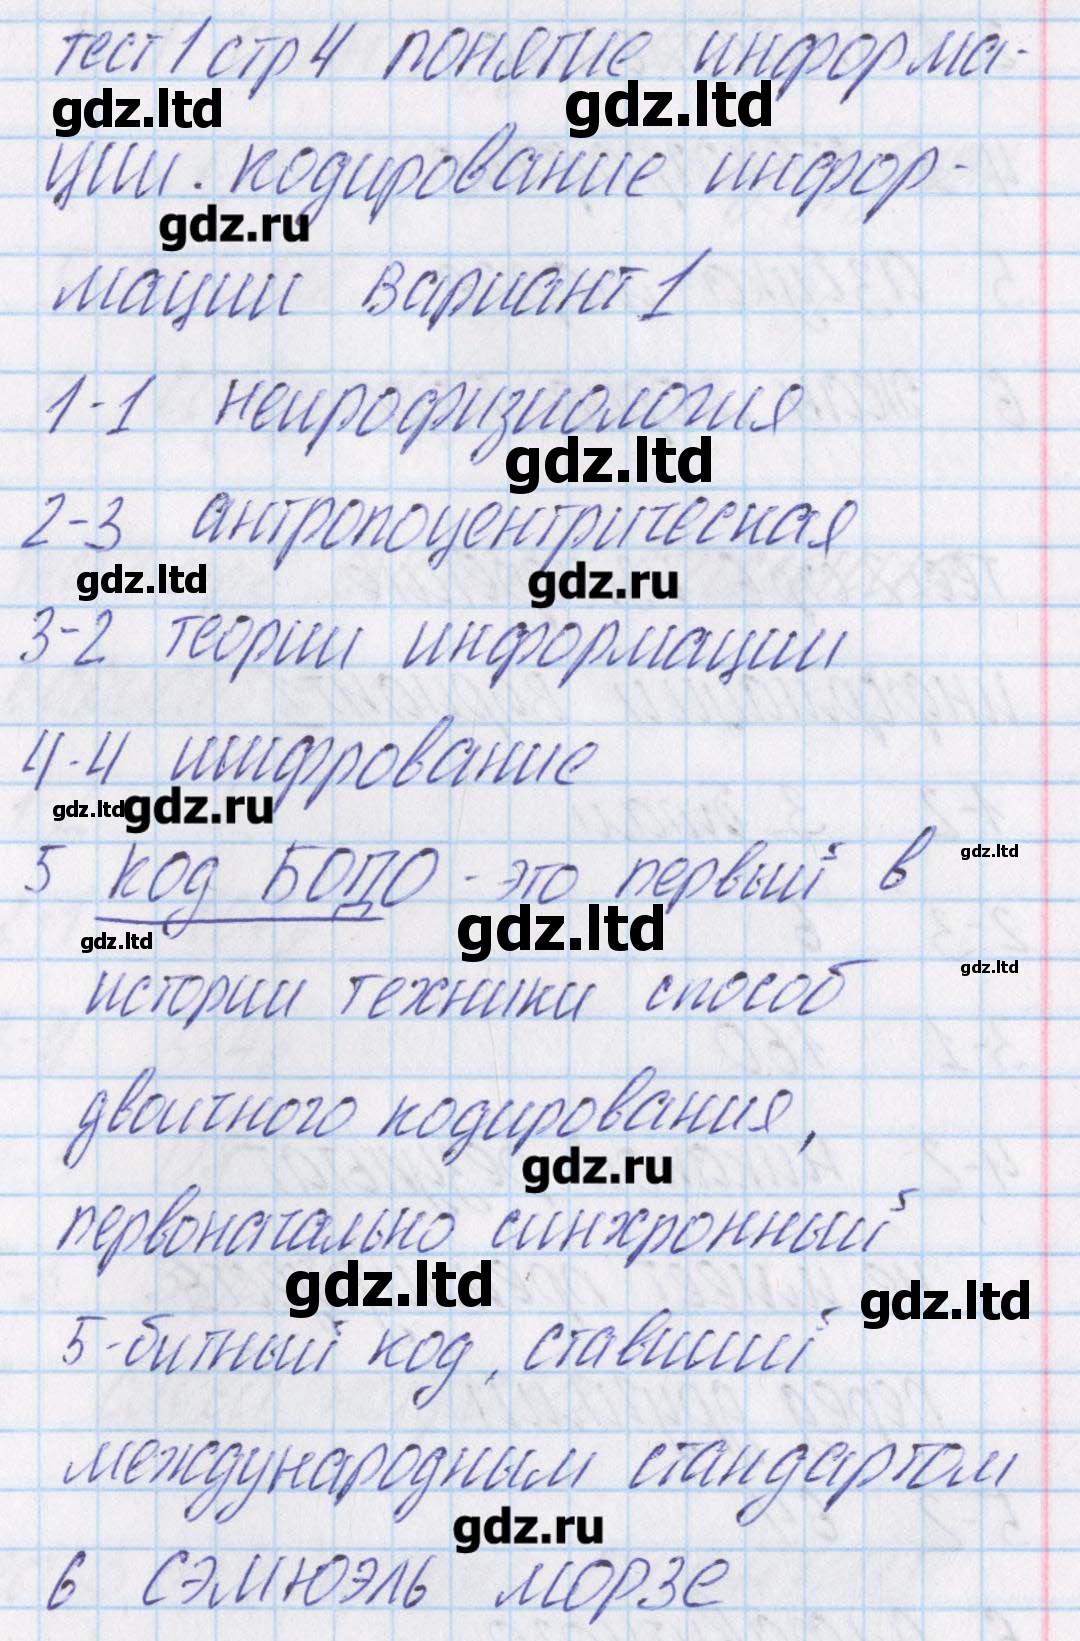 тест 1 стр 4 понятие информа-
gdz.ltd gdz.ltd
ции. кодирование инфор-
gdz.ru
мации вариант 1
1-1 нейрофизиология
gdz.ltd
2-3 антропоцентрическая
gdz.ltd gdz.ru
3-2 теории информации
4-4 шифрование
gdz.ltd gdz.ru
gdz.ltd
5 код БОДО - это первый в
gdz.ltd gdz.ltd
gdz.ltd
истории техники способ
двоичного кодирования,
gdz.ru
первоначально синхронный
gdz.ltd gdz.ltd
5-битный код, ставший
международным стандартом
gdz.ru
6 СЭМЮЭЛЬ МОРЗЕ